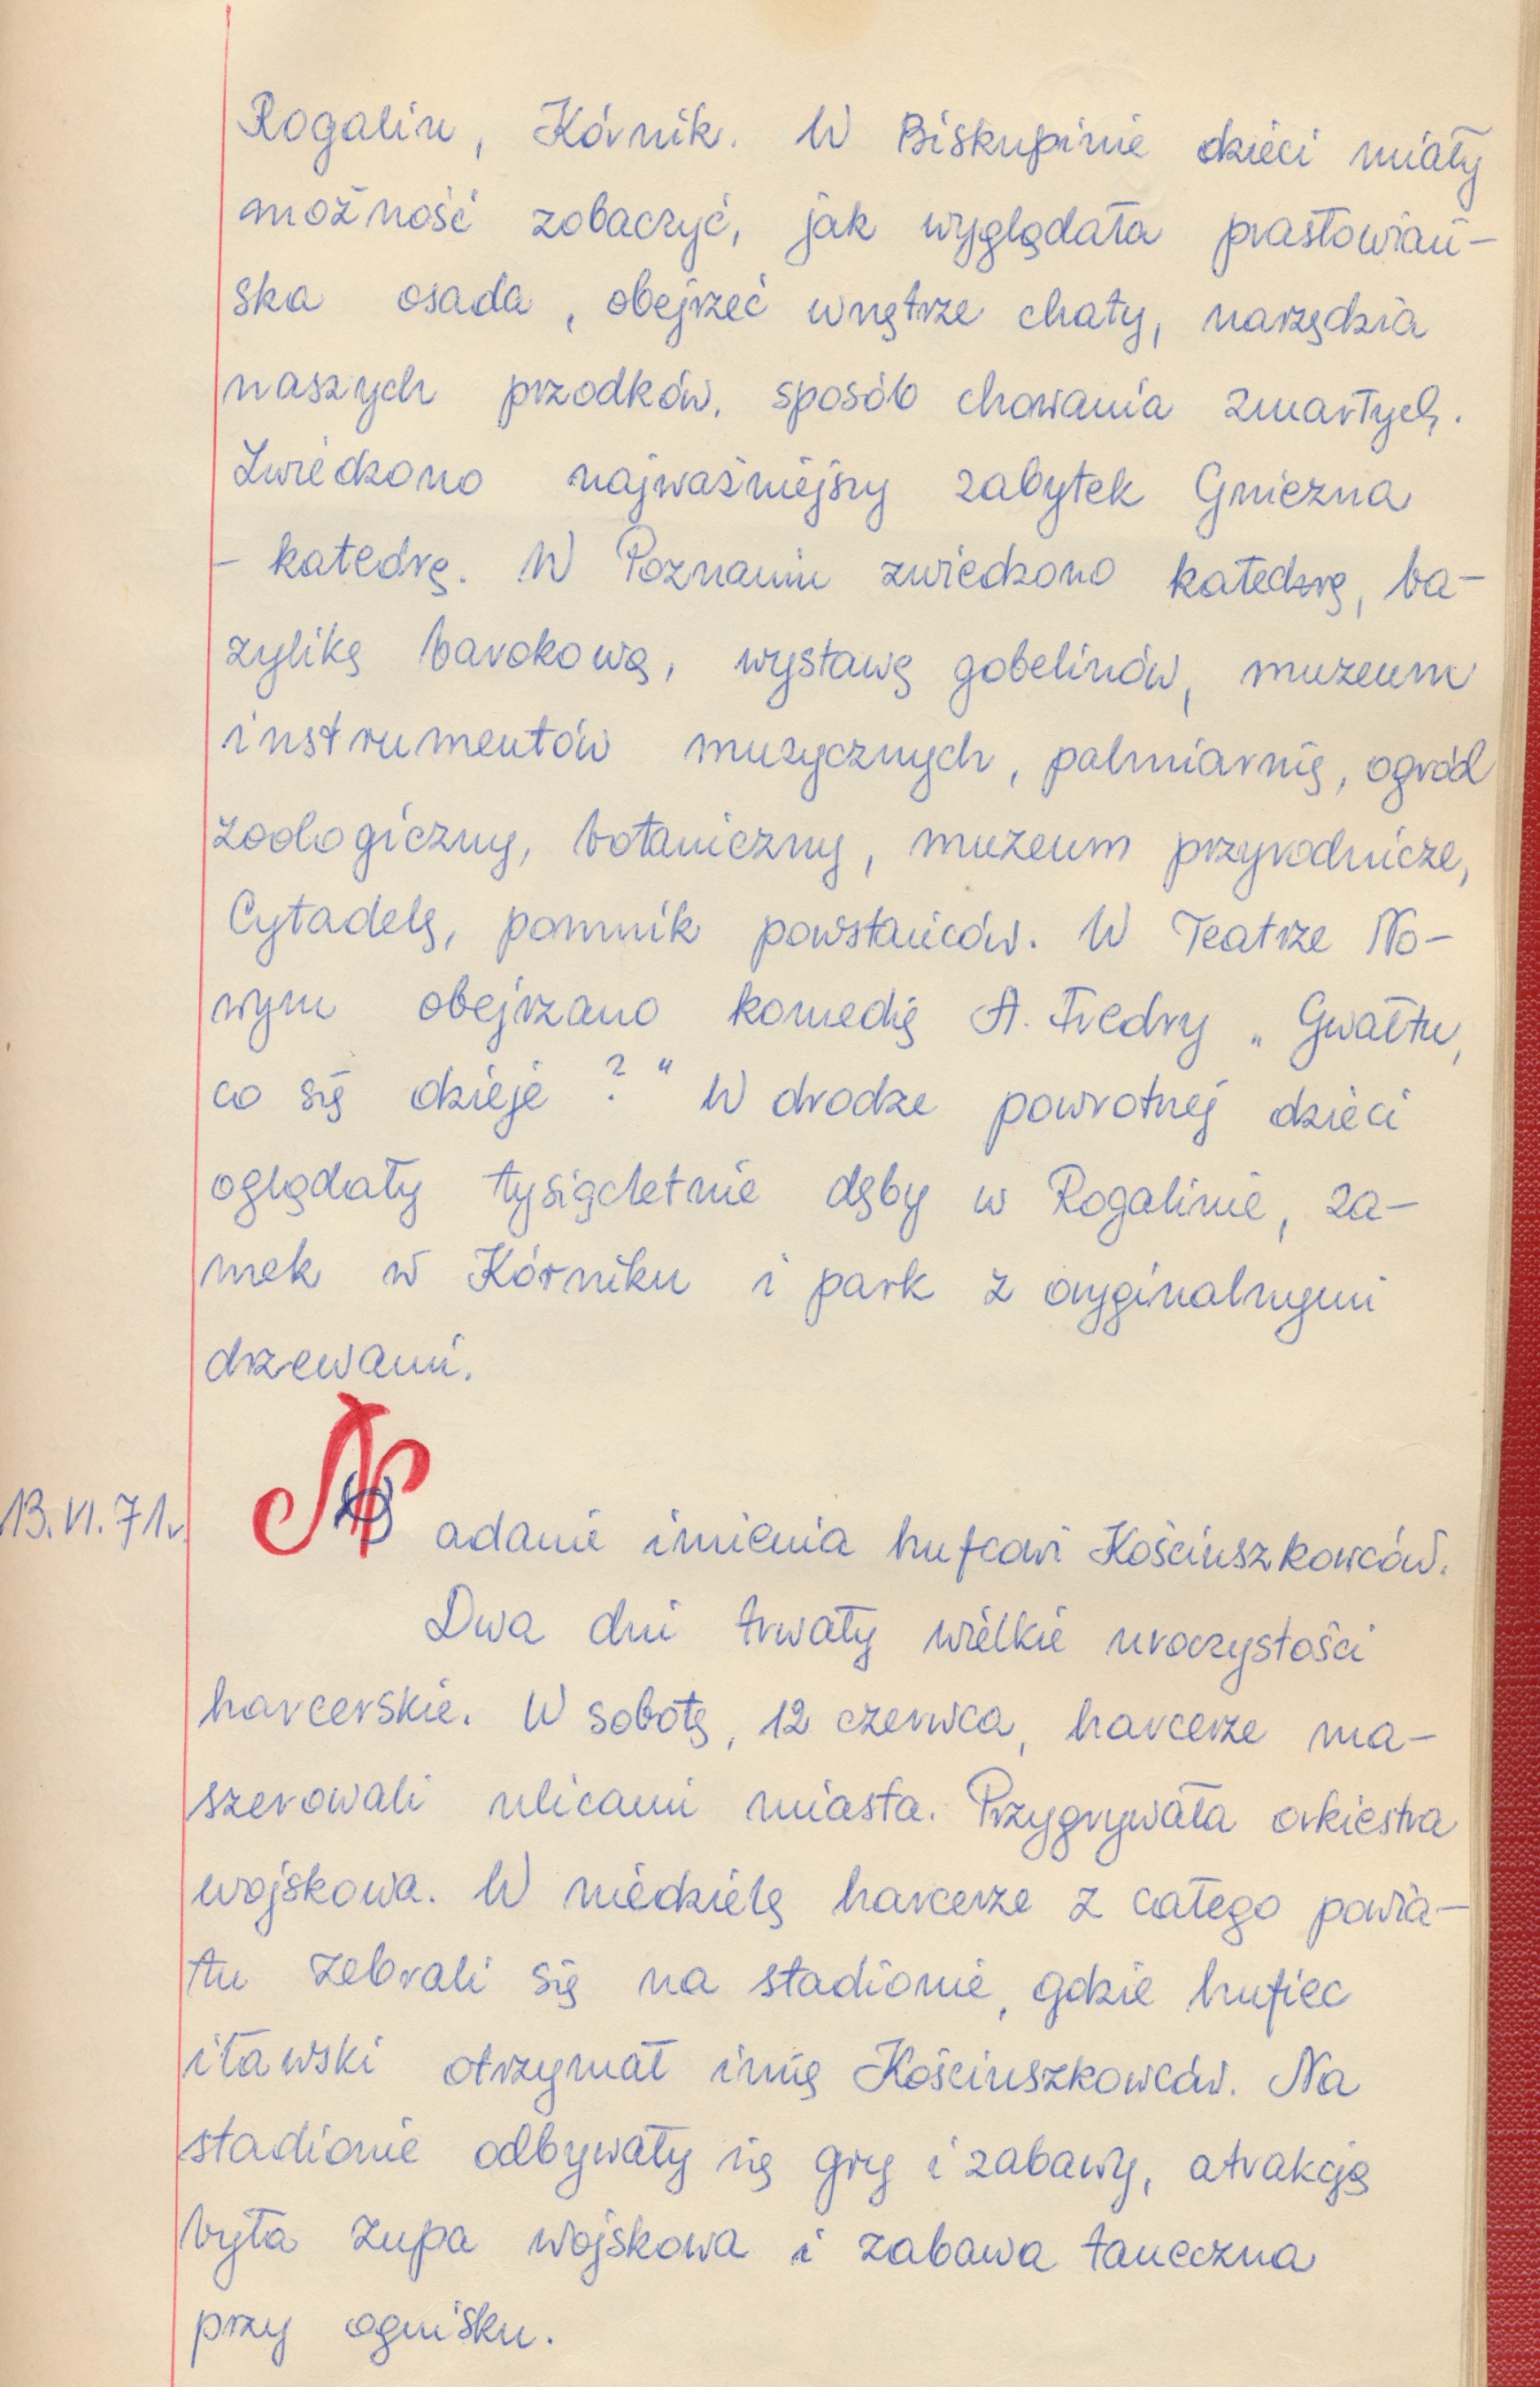 Rogalin, Kórnik. W Biskupinie dzieci miały
możność zobaczyć, jak wyglądała prasłowiań-
ska osada, obejrzeć wnętrze chaty, narzędzia
naszych przodków, sposób chowania zmarłych.
Zwiedzono najważniejszy zabytek Gniezna
- katedrę. W Poznaniu zwiedzono katedrę, ba-
zylikę barokową, wystawę gobelinów, muzeum
instrumentów muzycznych, palmiarnię, ogród
zoologiczny, botaniczny, muzeum przyrodnicze,
Cytadelę, pomnik powstańców. W Teatrze No-
wym obejrzano komedię A. Fredry „Gwałtu,
co się dzieje?" W drodze powrotnej dzieci
oglądały tysiącletnie dęby w Rogalinie, za-
mek w Kórniku i park z oryginalnymi
drzewami.
13.VI.71r. Nadanie imienia hufcowi Kościuszkowców.
Dwa dni trwały wielkie uroczystości
harcerskie. W sobotę, 12 czerwca, harcerze ma-
szerowali ulicami miasta. Przygrywała orkiestra
wojskowa. W niedzielę harcerze z całego powia-
tu zebrali się na stadionie, gdzie hufiec
iławski otrzymał imię Kościuszkowców. Na
stadionie odbywały się gry i zabawy, atrakcją
była zupa wojskowa i zabawa taneczna
przy ognisku.